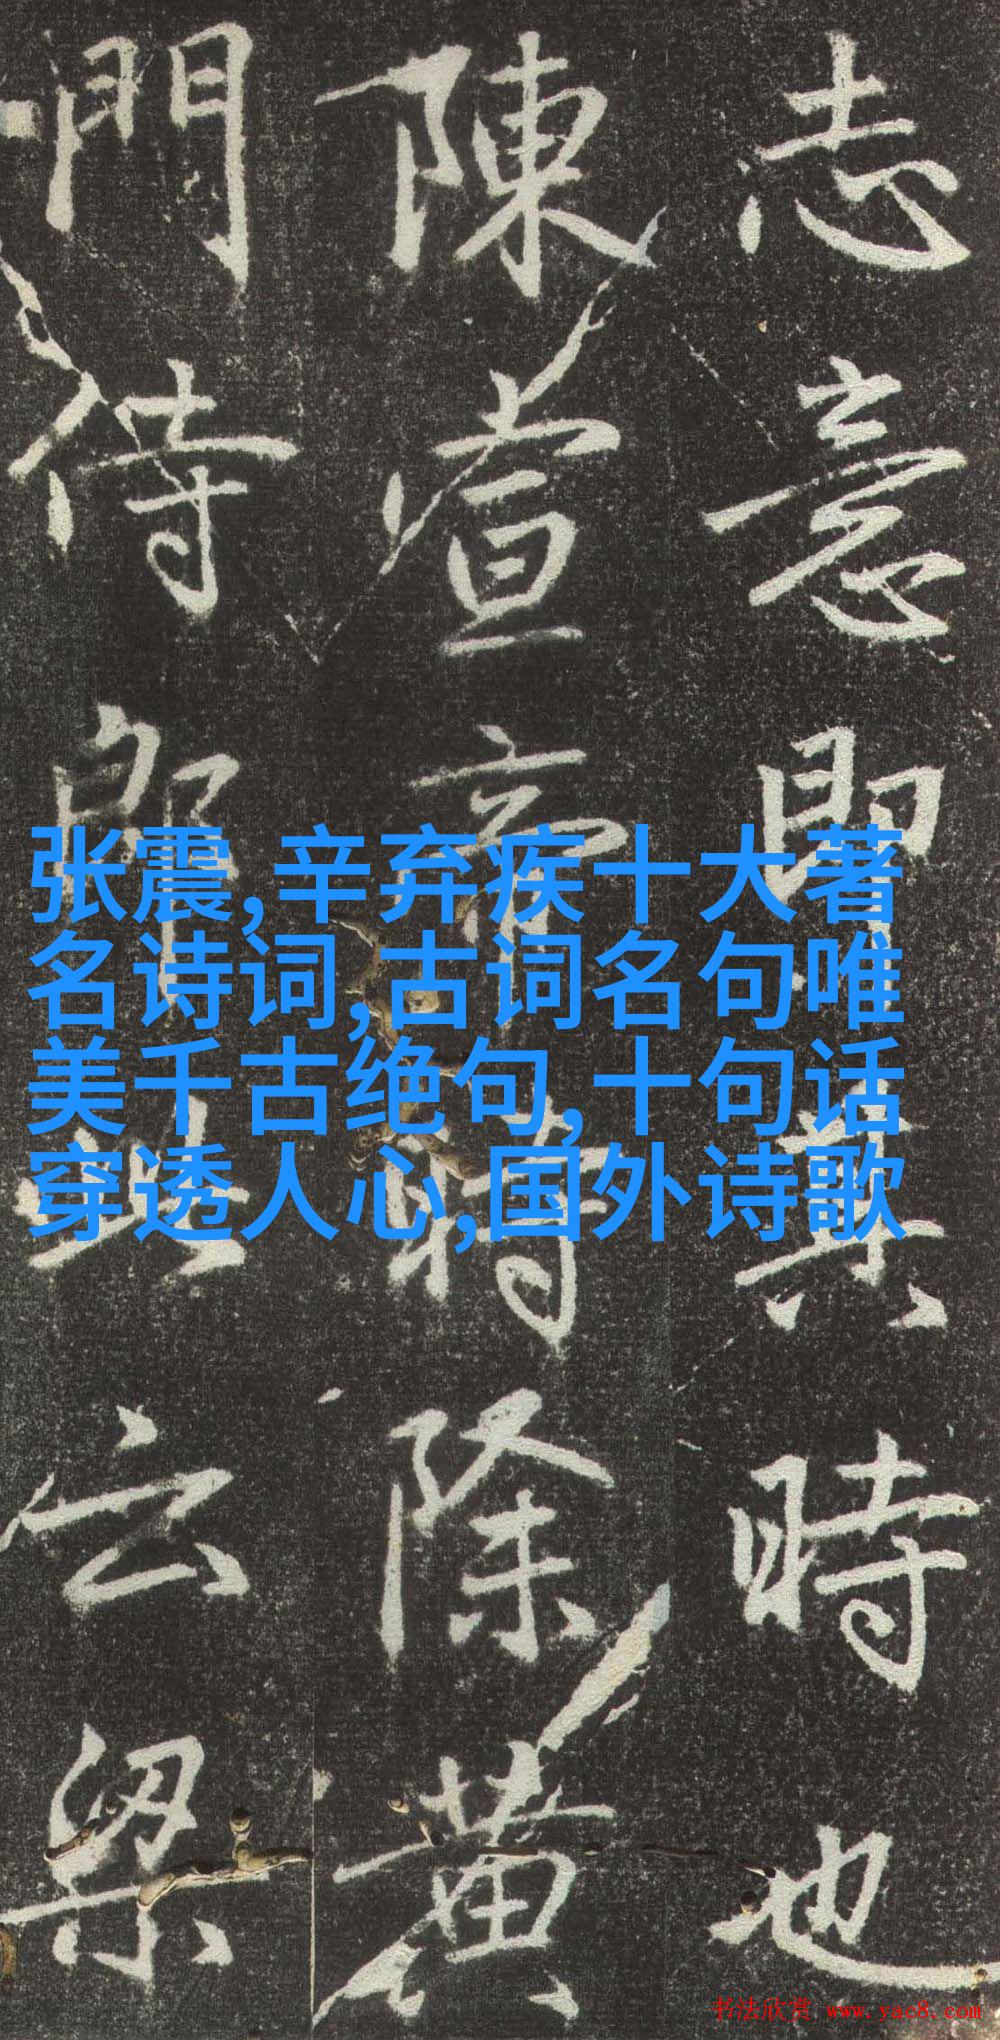 志意即其時也
陳宣帝時除黄
門侍郎與云梁
张震,辛弃疾十大著
名诗词,古词名句唯
美千古绝句,十句话
穿透人心,国外诗歌
书法欣赏 www.yac8.com